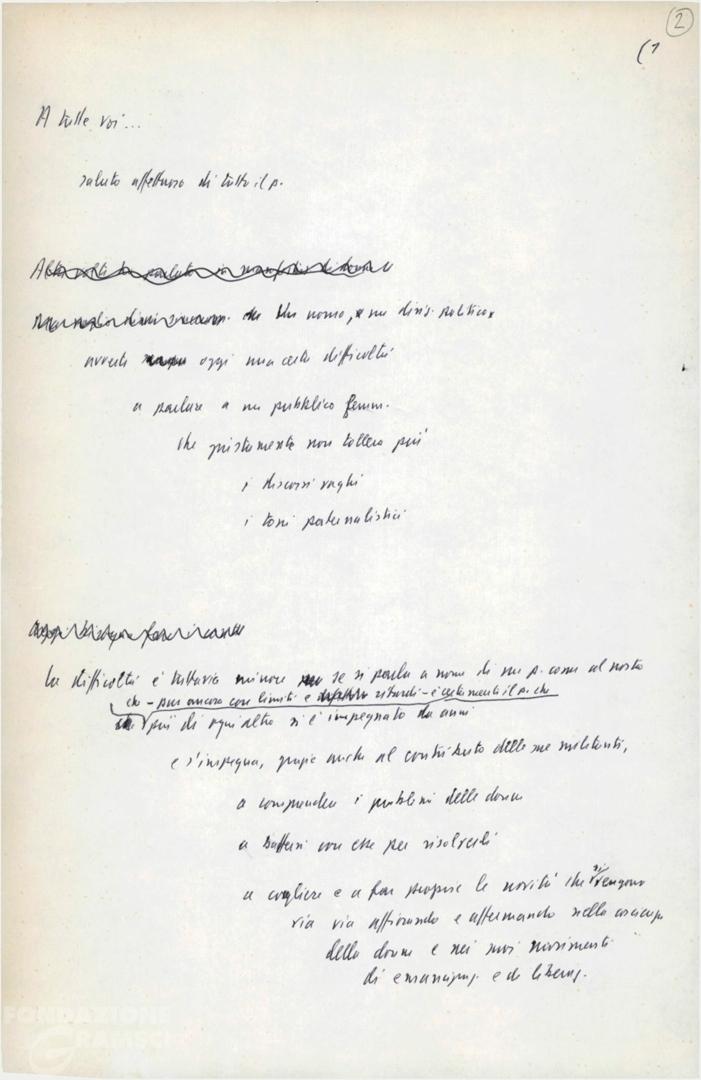 2
(1
A tutte voi...
saluto affettuoso di tutto il p.
Un uomo, e un dirig. politico,
avverte oggi una certa difficoltà
a parlare a un pubblico femm.
che giustamente non tollera più
i discorsi vaghi
i toni paternalistici
La difficoltà è tuttavia minore se si parla a nome di un p. come al nostro
che - pur ancora con limiti e ritardi - è certamente il p. che
più di ogni altro si è impegnato da anni
e s'impegna, grazie anche al contributo delle sue militanti,
a comprendere i problemi delle donne
a battersi con esse per risolverli
a cogliere e a far proprie le novità che si vengono
via via affiorando e affermando nella
delle donne e nei suoi movimenti
di emancip. e di liberaz.
FONDAZIONE
GRAMSCI